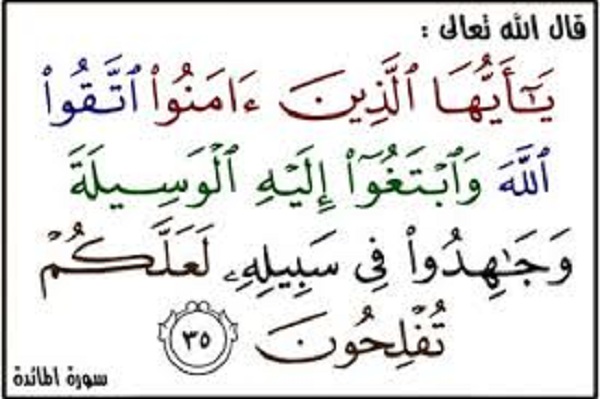 قال الله تعالى :
يَـٰٓأَيُّهَا ٱلَّذِينَ ءَامَنُوا۟ ٱتَّقُوا۟
ٱللَّهَ وَٱبْتَغُوٓا۟ إِلَيْهِ ٱلْوَسِيلَةَ
وَجَـٰهِدُوا۟ فِى سَبِيلِهِۦ لَعَلَّكُمْ
تُفْلِحُونَ ٣٥
سورة المائدة